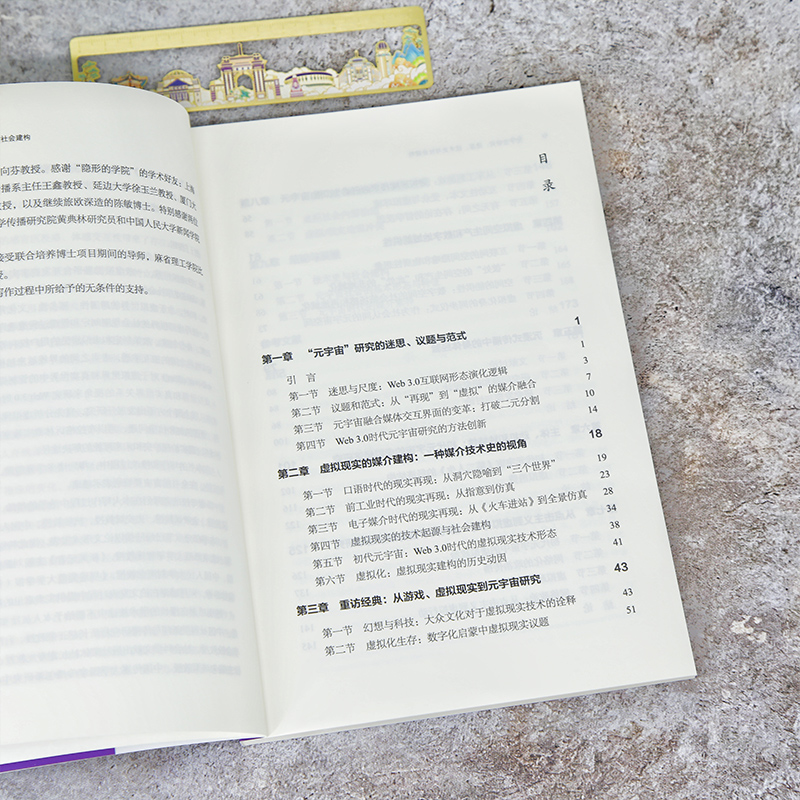 社会建构
向芬教授。感谢“隐形的学院”的学术好友：上海
播系主任王鑫教授、延边大学徐玉兰教授、厦门大
授，以及继续旅欧深造的陈敏博士。特别感谢岗位
学传播研究院黄典林研究员和中国人民大学新闻学院
接受联合培养博士项目期间的导师，麻省理工学院比
授。
写作过程中所给予的无条件的支持。
目录
第一章 “元宇宙”研究的迷思、议题与范式 1
引言 1
第一节 迷思与尺度：Web 3.0互联网形态演化逻辑 3
第二节 议题和范式：从“再现”到“虚拟”的媒介融合 7
第三节 元宇宙融合媒体交互界面的变革：打破二元分割 10
第四节 Web 3.0时代元宇宙研究的方法创新 14
第二章 虚拟现实的媒介建构：一种媒介技术史的视角 18
第一节 口语时代的现实再现：从洞穴隐喻到“三个世界” 19
第二节 前工业时代的现实再现：从指意到仿真 23
第三节 电子媒介时代的现实再现：从《火车进站》到全景仿真 28
第四节 虚拟现实的技术起源与社会建构 34
第五节 初代元宇宙：Web 3.0时代的虚拟现实技术形态 38
第六节 虚拟化：虚拟现实建构的历史动因 41
第三章 重访经典：从游戏、虚拟现实到元宇宙研究 43
第一节 幻想与科技：大众文化对于虚拟现实技术的诠释 43
第二节 虚拟化生存：数字化启蒙中虚拟现实议题 51